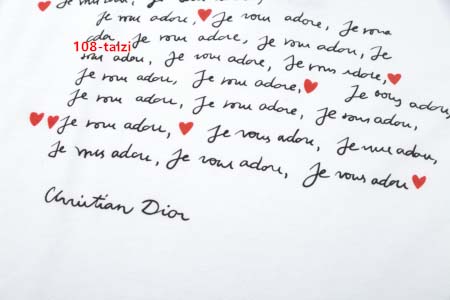 Je vous adore, Je vous adore, Je vous
Je vous adore, Je vous adore, Je
108-talzi
vous adore, Je vous adore, Je vous adore,
Je vous adore, Je vous adore, Je vous adore,
Je vous adore, Je vous adore, Je vous adore,
Je vous adore, Je vous adore, Je vous adore,
Je vous adore, Je vous adore, Je vous adore
Christian Dior